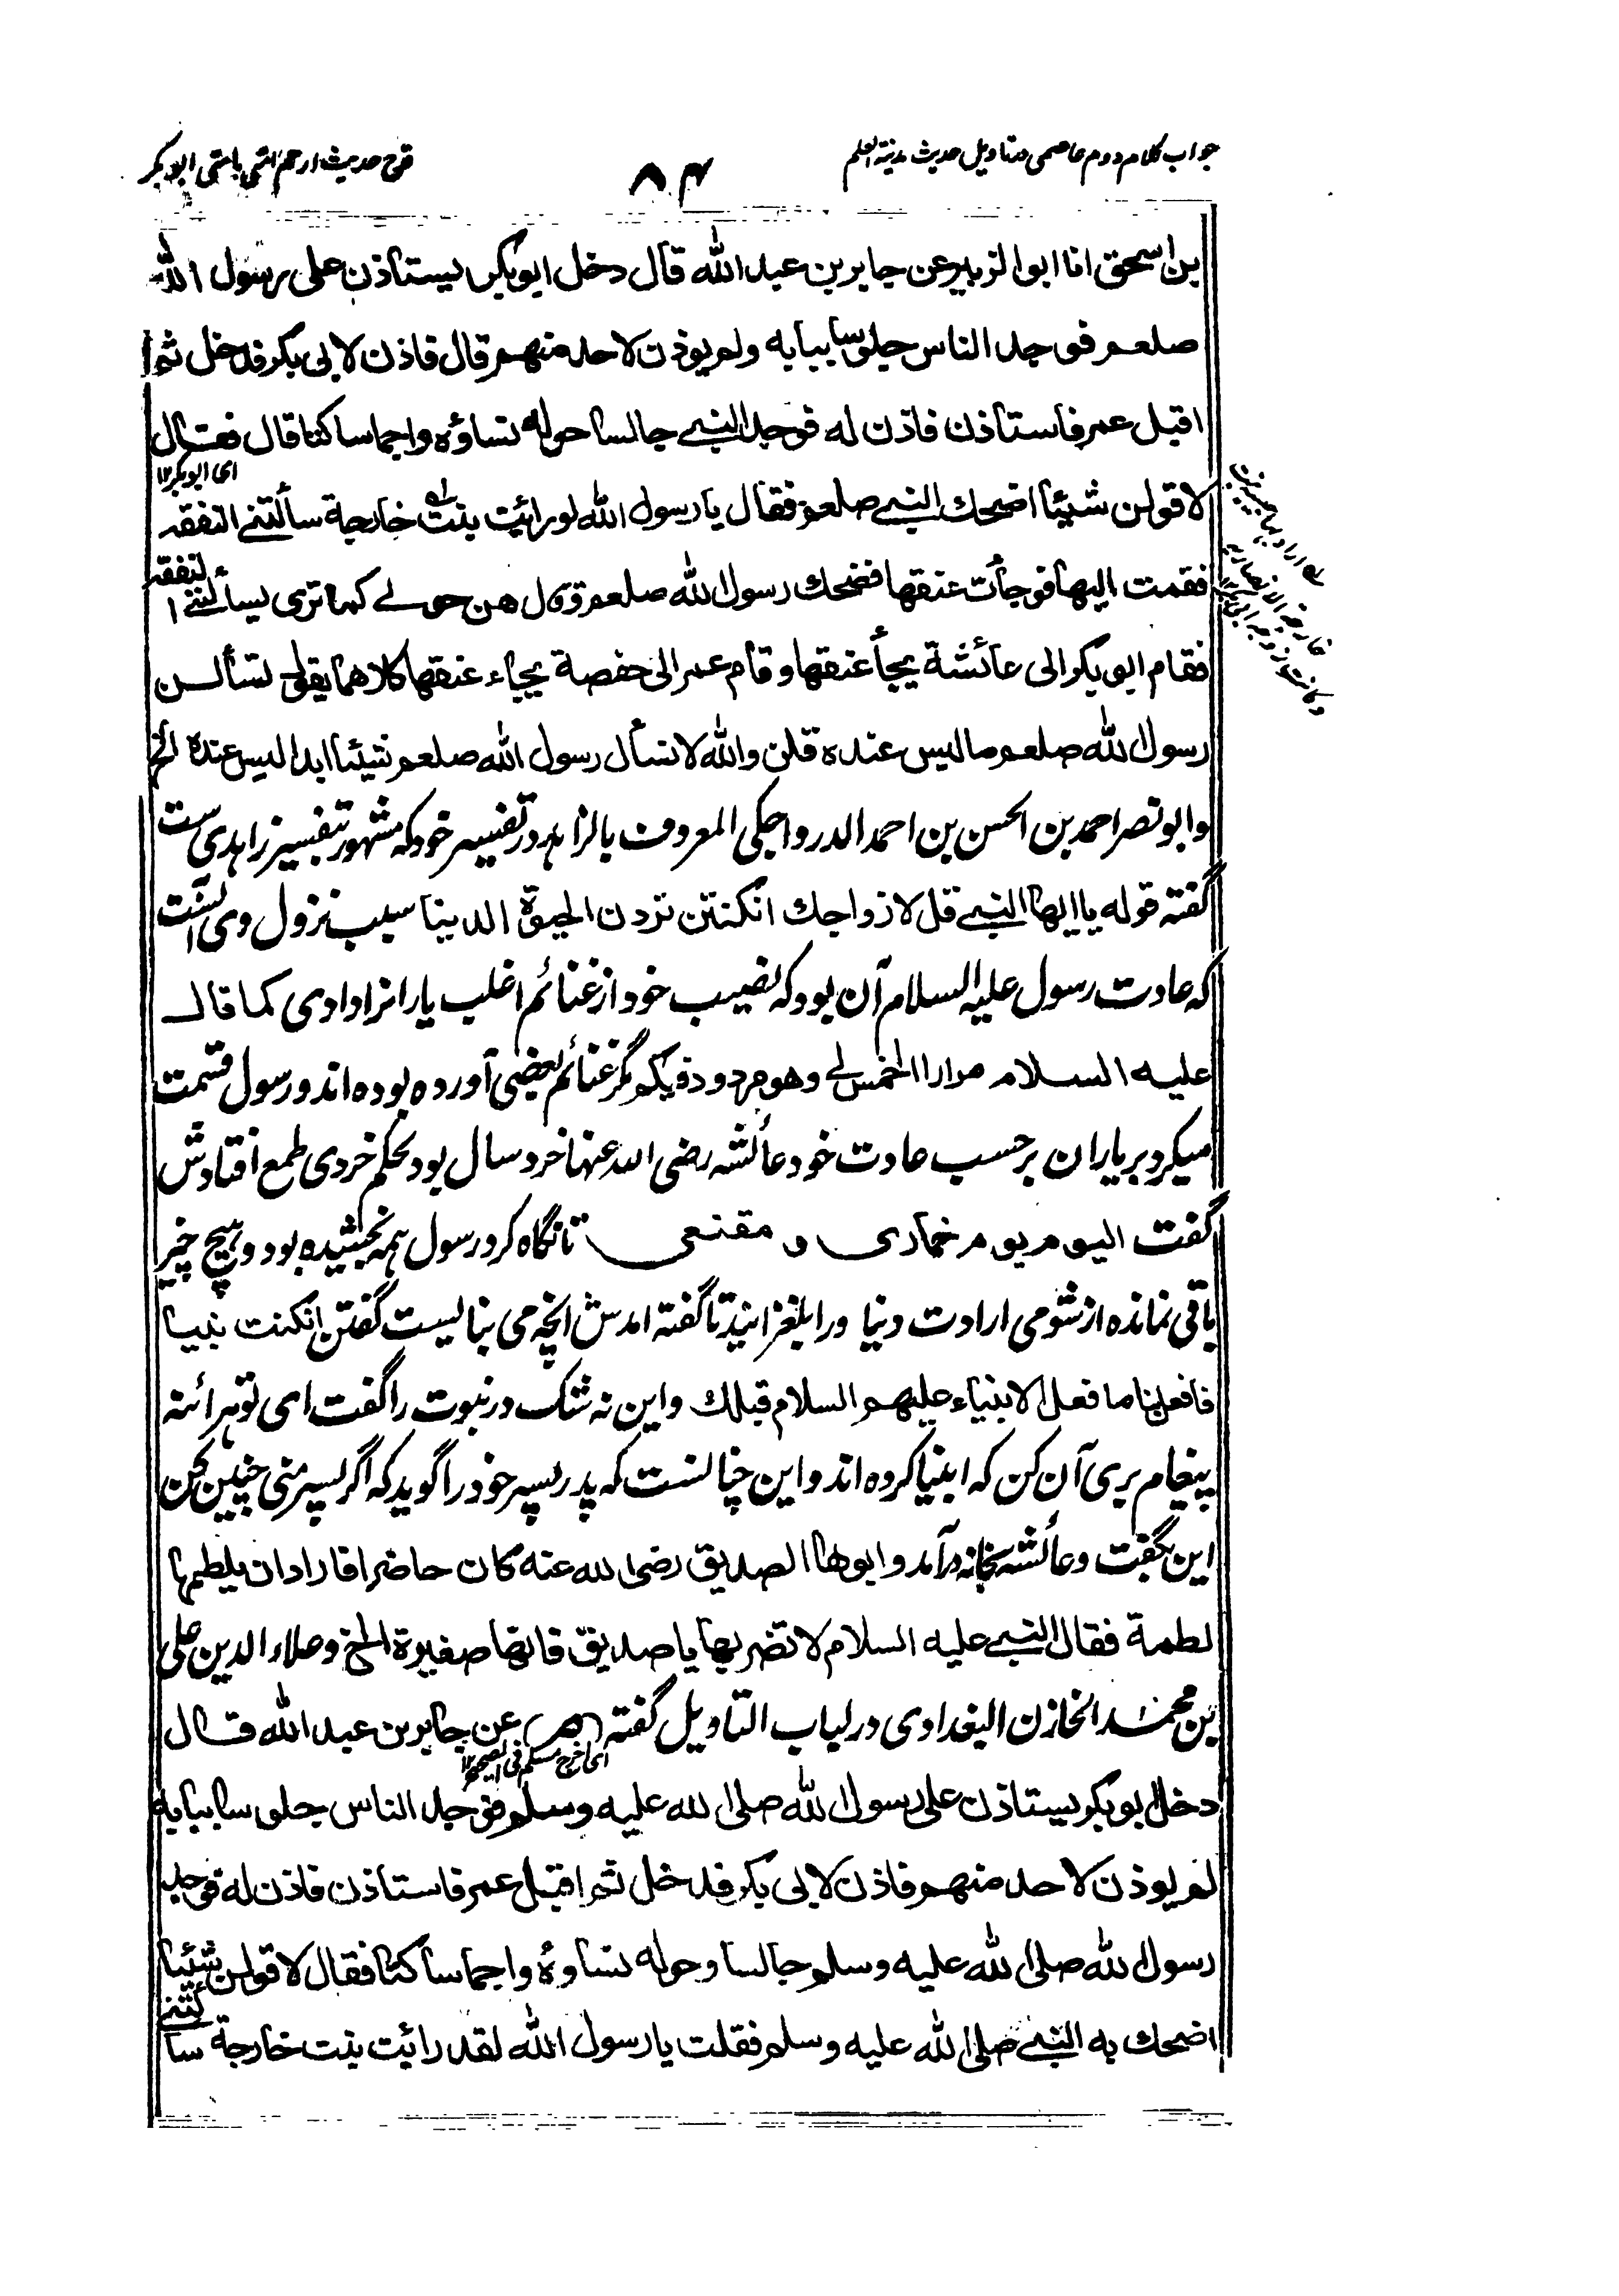 جواب کلام دوم عاصمی در تاویل حدیث مدینة العلم
۸۴
قدح حدیث ارحم امتی بامتی ابو بکر
بن اسحق انا ابو الزبير عن جابر بن عبد الله قال دخل ابو بكر يستاذن على رسول الله
صلعم فوجد الناس جلوسا ببابه ولم يوذن لاحد منهم قال فاذن لابی بكر فدخل ثم
اقبل عمر فاستاذن فاذن له فوجد النبي جالسا حوله نساؤه واجما ساكتا قال فقال
ای ابو بکر ۱۲
لاقولن شيئا اضحك النبي صلعم فقال يا رسول الله لو رايت بنت خارجة سألتنى النفقه
فقمت اليها فوجأت عنقها فضحك رسول الله صلعم وقال هن حولے كما ترى يسألننے النفقة
فقام ابو بكر الى عائشة يجأ عنقها وقام عمر الى حفصة يجاء عنقها كلاهما يقول تسألن
رسول الله صلعم ما ليس عنده قلن والله لا نسأل رسول الله صلعم شيئا ابدا ليس عنده الخ
وابو نصر احمد بن الحسن بن احمد الدرواجکی المعروف بالزاهد در تفسیر خود که مشهور بتفسیر زاهدی ست
گفته قوله يا ايها النبي قل لازواجك ان كنتن تردن الحيوة الدنيا سبب نزول وی آنست
که عادت رسول علیه السلام آن بود که نصیب خود از غنائم اغلب یارانرا دادی کما قال
عليه السلام مرارا الخمس لے وهو مردود فيكم مگر غنائم بعضی آورده بوده اند و رسول قسمت
میکرد بر یاران بر حسب عادت خود عائشه رضی الله عنها خرد سال بود بحکم خردی طمع افتادش
گفت اليوم يوم خماری و مقنعی تا نگاه کرد رسول همه بخشیده بود و هیچ چیز
باقی نمانده از شومی ارادت دنیا ورا بلغزانید تا گفته امدش انچه می نبایست گفتن ان كنت نبيا
فافعل بنا ما فعل الانبياء عليهم السلام قبلك و این نه شک در نبوت را گفت ای تو هرائنه
پیغامبری آن کن که انبیا کرده اند و این چنانست که پدر پسر خود را گوید که اگر پسر منی چنین کن
این بگفت و عائشه بخانه درآمد وابوها الصديق رضی الله عنه كان حاضرا فاراد ان يلطمها
لطمة فقال النبي عليه السلام لا تضربها يا صديق فانها صغيرة الخ وعلاء الدين على
بن محمد الخازن البغدادی در لباب التاویل گفته (م) عن جابر بن عبد الله قال
ای اخرج مسلم فی الصحیح ۱۲
دخل ابو بكر يستاذن على رسول الله صلى الله عليه وسلم فوجد الناس جلوسا ببابه
لم يوذن لاحد منهم فاذن لابی بكر فدخل ثم اقبل عمر فاستاذن فاذن له فوجد
رسول الله صلى الله عليه وسلم جالسا وحوله نساوه واجما ساكتا فقال لاقولن شيئا
اضحك به النبي صلى الله عليه وسلم فقلت يا رسول الله لقد رائيت بنت خارجة سألتنے